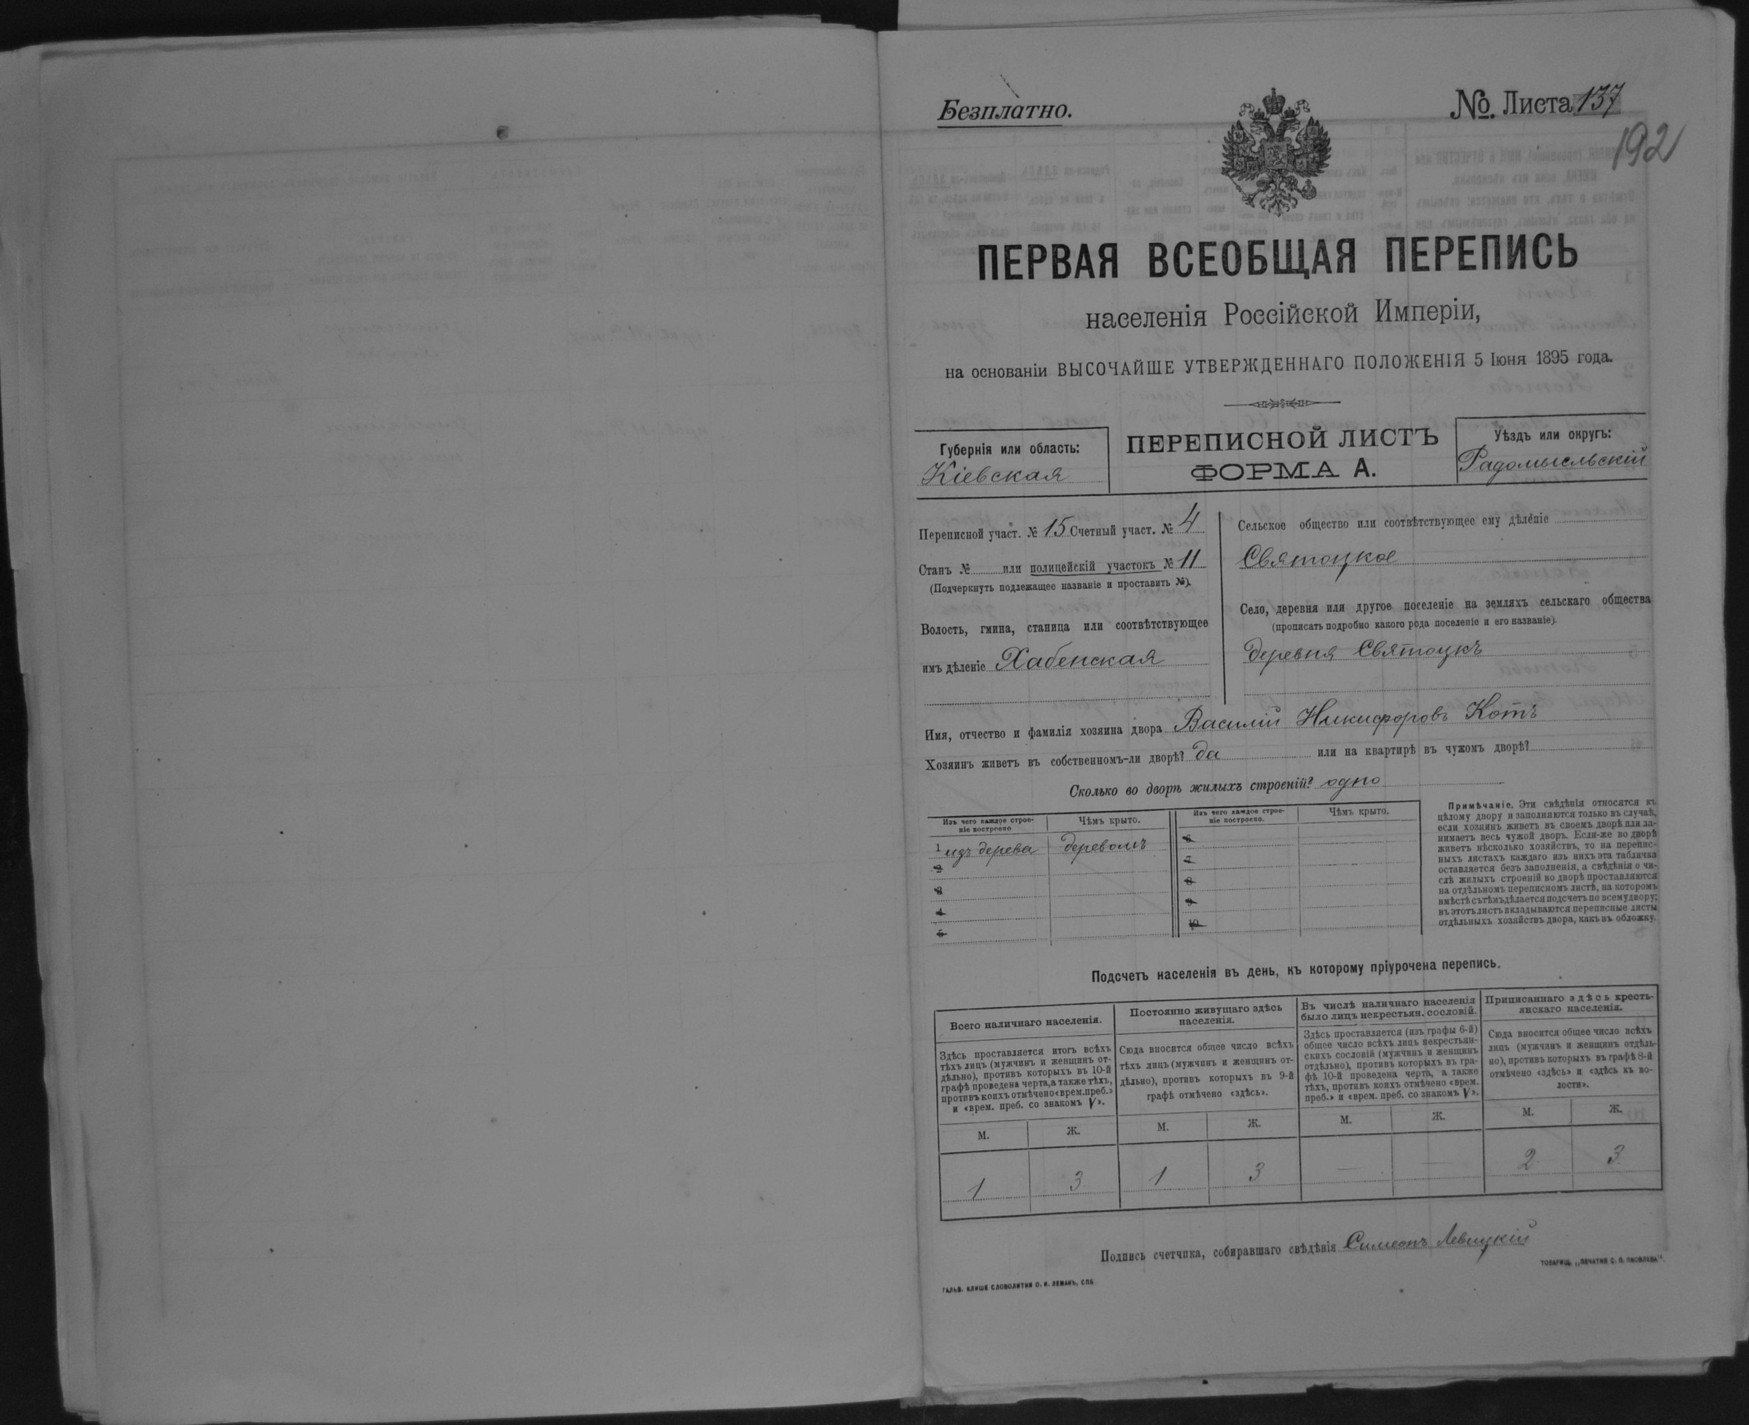 Безплатно.
№ Листа 137
192
ПЕРВАЯ ВСЕОБЩАЯ ПЕРЕПИСЬ
населенія Россійской Имперіи,
на основаніи ВЫСОЧАЙШЕ УТВЕРЖДЕННАГО ПОЛОЖЕНІЯ 5 Іюня 1895 года.
Губернія или область:
Кіевская
ПЕРЕПИСНОЙ ЛИСТЪ
ФОРМА А.
Уѣздъ или округъ:
Радомысльскій
Переписной участ. № 15 Счетный участ. № 4
Станъ № или полицейскій участокъ № 11
(Подчеркнуть подлежащее названіе и проставить №).
Волость, гмина, станица или соотвѣтствующее
имъ дѣленіе Хабенская
Сельское общество или соотвѣтствующее ему дѣленіе
Святоцкое
Село, деревня или другое поселеніе на земляхъ сельскаго общества
(прописать подробно какого рода поселеніе и его названіе).
деревня Святоцкъ
Имя, отчество и фамилія хозяина двора Василій Никифоровъ Котъ
Хозяинъ живетъ въ собственномъ-ли дворѣ? да или на квартирѣ въ чужомъ дворѣ?
Сколько во дворѣ жилыхъ строеній? одно
Изъ чего каждое строе-
ніе построено.
Чѣмъ крыто.
Изъ чего каждое строе-
ніе построено.
Чѣмъ крыто.
1 изъ дерева деревомъ
2
3
4
5
6
7
8
9
10
Примѣчаніе. Эти свѣдѣнія относятся къ
цѣлому двору и заполняются только въ случаѣ,
если хозяинъ живетъ въ своемъ дворѣ или за-
нимаетъ весь чужой дворъ. Если-же во дворѣ
живетъ нѣсколько хозяйствъ, то на перепис-
ныхъ листахъ каждаго изъ нихъ эта табличка
оставляется безъ заполненія, а свѣдѣнія о чи-
слѣ жилыхъ строеній во дворѣ проставляются
на отдѣльномъ переписномъ листѣ, на которомъ
вмѣстѣ съ тѣмъ дѣлается подсчетъ по всему двору;
въ этотъ листъ вкладываются переписные листы
отдѣльныхъ хозяйствъ двора, какъ въ обложку.
Подсчетъ населенія въ день, къ которому пріурочена перепись.
Всего наличнаго населенія.
Здѣсь проставляется итогъ всѣхъ
тѣхъ лицъ (мужчинъ и женщинъ от-
дѣльно), противъ которыхъ въ 10-й
графѣ проведена черта, а также тѣхъ,
противъ коихъ отмѣчено «врем. преб.»
и «врем. преб. со знакомъ V».
Постоянно живущаго здѣсь
населенія.
Сюда вносится общее число всѣхъ
тѣхъ лицъ (мужчинъ и женщинъ от-
дѣльно), противъ которыхъ въ 9-й
графѣ отмѣчено «здѣсь».
Въ числѣ наличнаго населенія
было лицъ некрестьян. сословій.
Здѣсь проставляется (изъ графы 6-й)
общее число всѣхъ лицъ некрестьян-
скихъ сословій (мужчинъ и женщинъ
отдѣльно), противъ которыхъ въ гра-
фѣ 10-й проведена черта, а также
тѣхъ, противъ коихъ отмѣчено «врем.
преб.» и «врем. преб. со знакомъ V».
Приписаннаго здѣсь кресть-
янскаго населенія.
Сюда вносится общее число всѣхъ
лицъ (мужчинъ и женщинъ отдѣль-
но), противъ которыхъ въ графѣ 8-й
отмѣчено «здѣсь» и «здѣсь къ во-
лости».
М. Ж. М. Ж. М. Ж. М. Ж.
1 3 1 3 — — 2 3
Подпись счетчика, собиравшаго свѣдѣнія Симеонъ Левицкій
ГАЛЬВ. КЛИШЕ СЛОВОЛИТНИ О. И. ЛЕМАНЪ, СПБ.
ТОВАРИЩ. „ПЕЧАТНЯ С. П. ЯКОВЛЕВА".